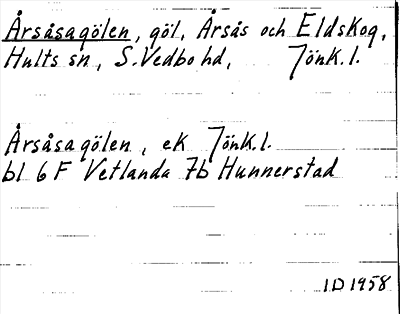 Årsåsagölen, göl, Årsås och Eldskog,
Hults sn, S.Vedbo hd, Jönk.l.
Årsåsagölen, ek Jönk.l.
bl 6 F Vetlanda 7b Hunnerstad
ID 1958